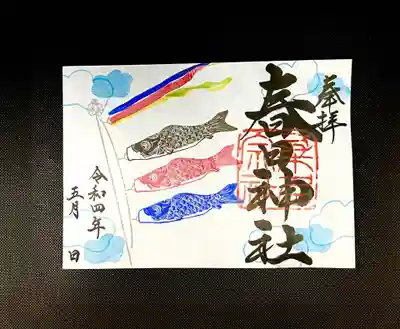 奉拝
春日神社
令和四年
五月 日